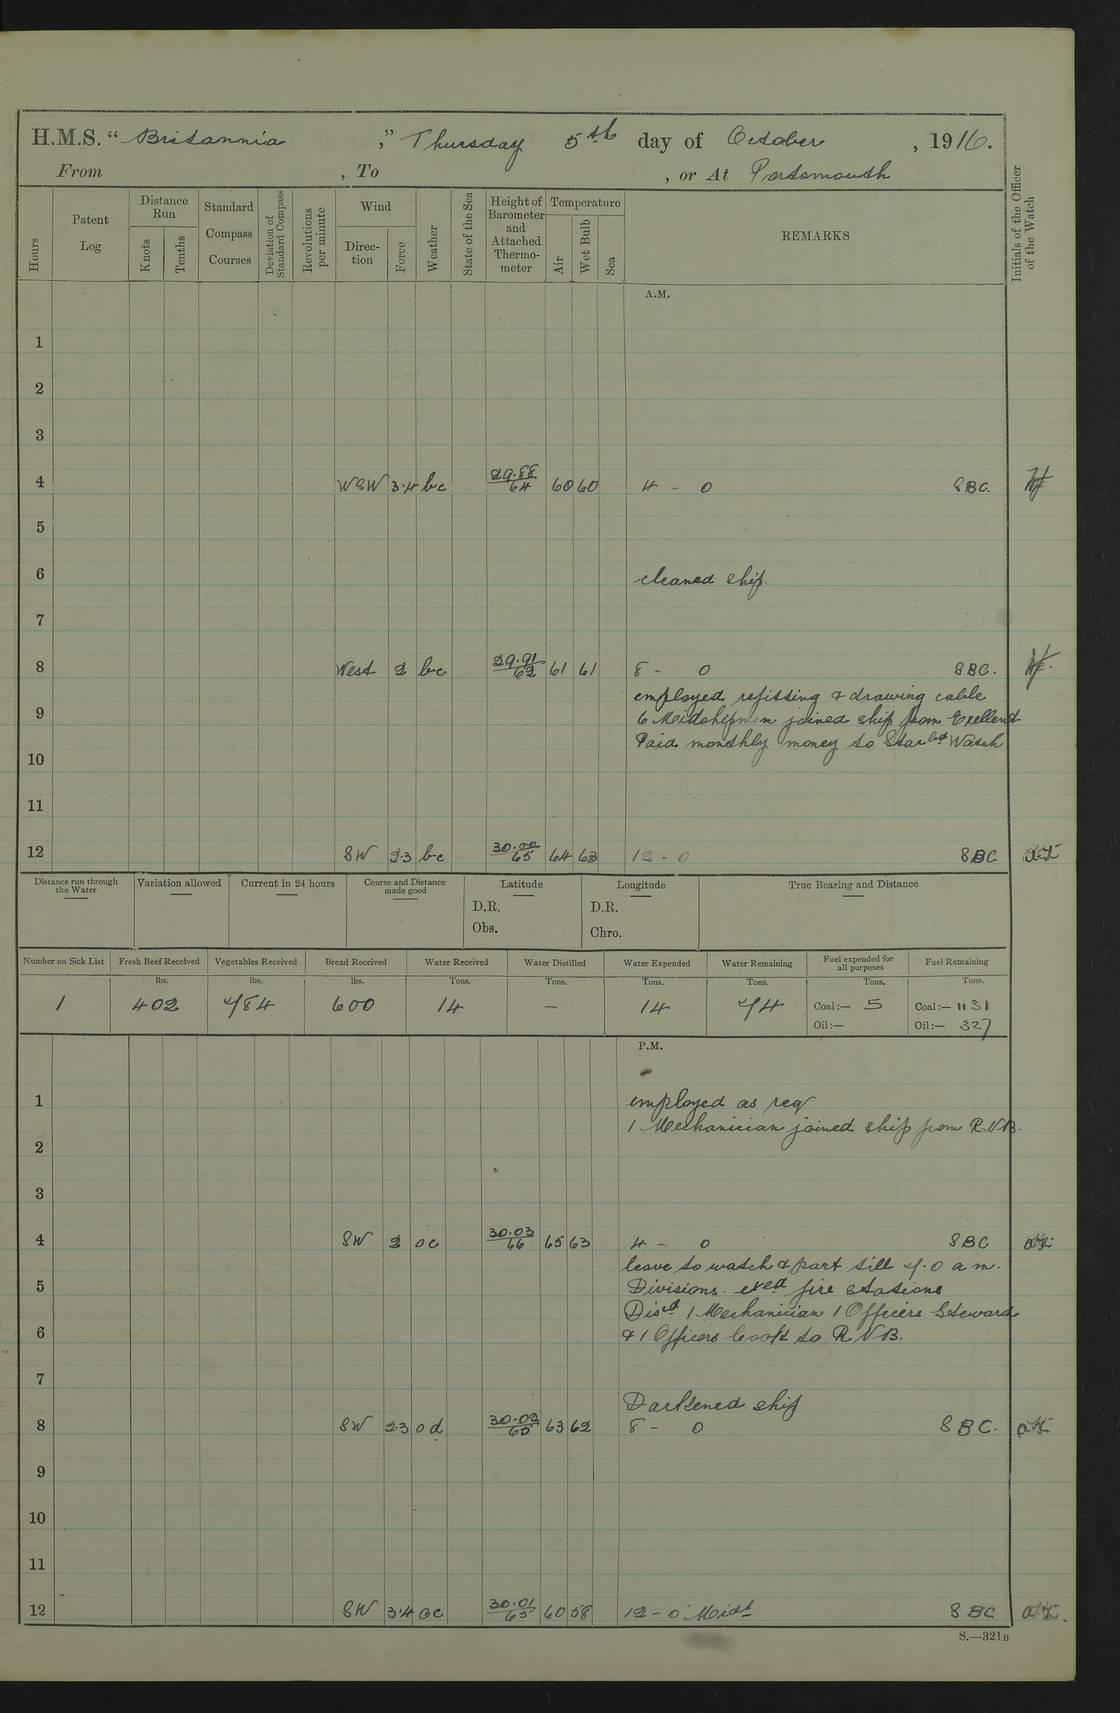 H.M.S. “ Britannia ,” Thursday 5th day of October , 1916.
From , To , or At Portsmouth
Hours
Patent Log
Distance Run
Knots
Tenths
Standard Compass Courses
Deviation of Standard Compass
Revolutions per minute
Wind
Direction
Force
Weather
State of the Sea
Height of Barometer and Attached Thermometer
Temperature
Air
Wet Bulb
Sea
REMARKS
Initials of the Officer of the Watch
A.M.
1
2
3
4 WSW 3.4 bc 29.88/64 60 60 4 - 0 SBC.
5
6 cleaned ship.
7
8 West 2 bc 29.91/62 61 61 8 - 0 SBC.
employed refitting & drawing cable
9 6 Midshipmen joined ship from Excellent
Paid monthly money to Starbd Watch
10
11
12 SW 2.3 bc 30.00/65 64 63 12 - 0 SBC
Distance run through the Water
Variation allowed
Current in 24 hours
Course and Distance made good
Latitude
D.R.
Obs.
Longitude
D.R.
Chro.
True Bearing and Distance
Number on Sick List Fresh Beef Received Vegetables Received Bread Received Water Received Water Distilled Water Expended Water Remaining Fuel expended for all purposes Fuel Remaining
lbs. lbs. lbs. Tons. Tons. Tons. Tons. Tons. Tons.
1 402 784 600 14 — 14 74 Coal:— 5 Coal:— 1131
Oil:— Oil:— 327
P.M.
1 employed as req
1 Mechanician joined ship from R.N.B.
2
3
4 SW 2 oc 30.03/66 65 63 4 - 0 SBC
leave to watch & part till 7.0 a m.
5 Divisions. exed fire stations
Discd 1 Mechanician 1 Officers Steward
6 & 1 Officers Cook to R.N.B.
7
Darkened ship
8 SW 2.3 od 30.02/65 63 62 8 - 0 SBC.
9
10
11
12 SW 3.4 oc 30.01/65 60 58 12 - 0 Midt SBC
S.—321B